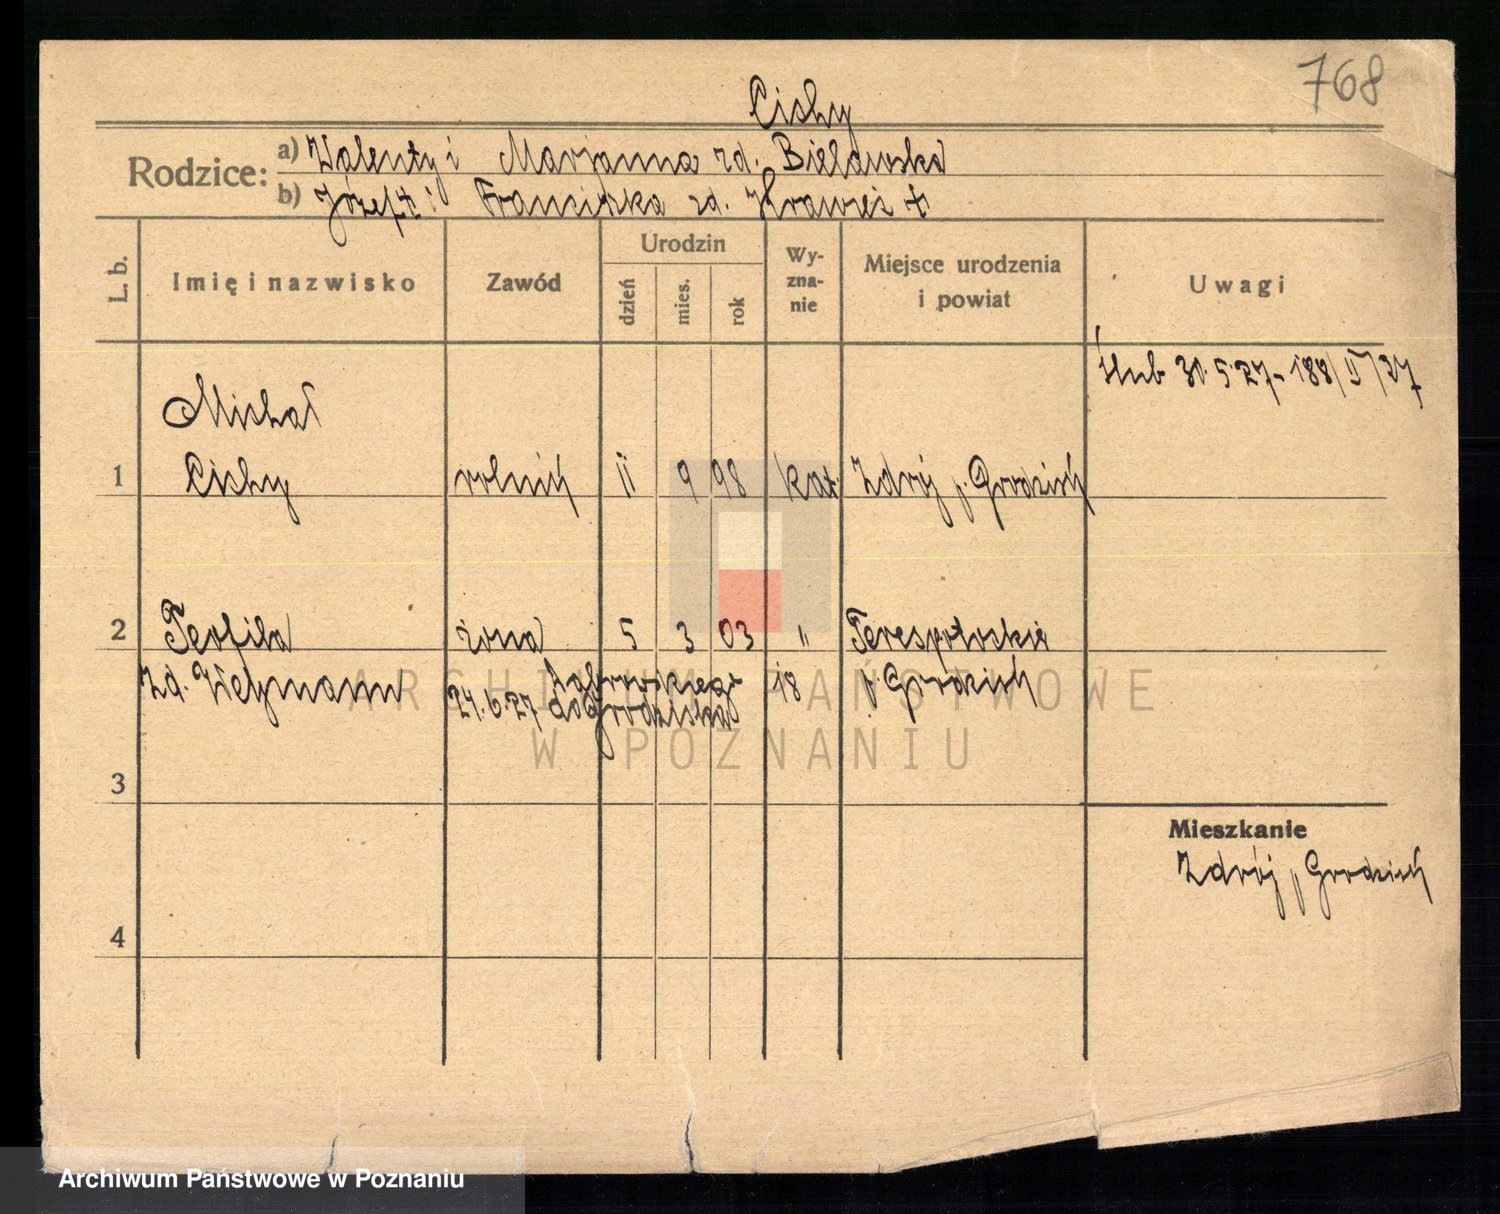 768
Cichy
Rodzice: a) Walenty i Marjanna zd. Bielawska
b) Józef † i Franciszka zd. Krawiec †
L. b.
Imię i nazwisko
Zawód
Urodzin
dzień
mies.
rok
Wy-
zna-
nie
Miejsce urodzenia
i powiat
Uwagi
Ślub 30.5.27 - 188/II/27
Michał
1 Cichy rolnik 11 9 98 kat. Zdrój p. Grodzisk
2 Teofila żona 5 3 03 " Terespotockie
zd. 24.6.27 do Grodziska 18 p. Grodzisk
3
Mieszkanie
Zdrój p. Grodzisk
4
ARCHIWUM PAŃSTWOWE
W POZNANIU
Archiwum Państwowe w Poznaniu